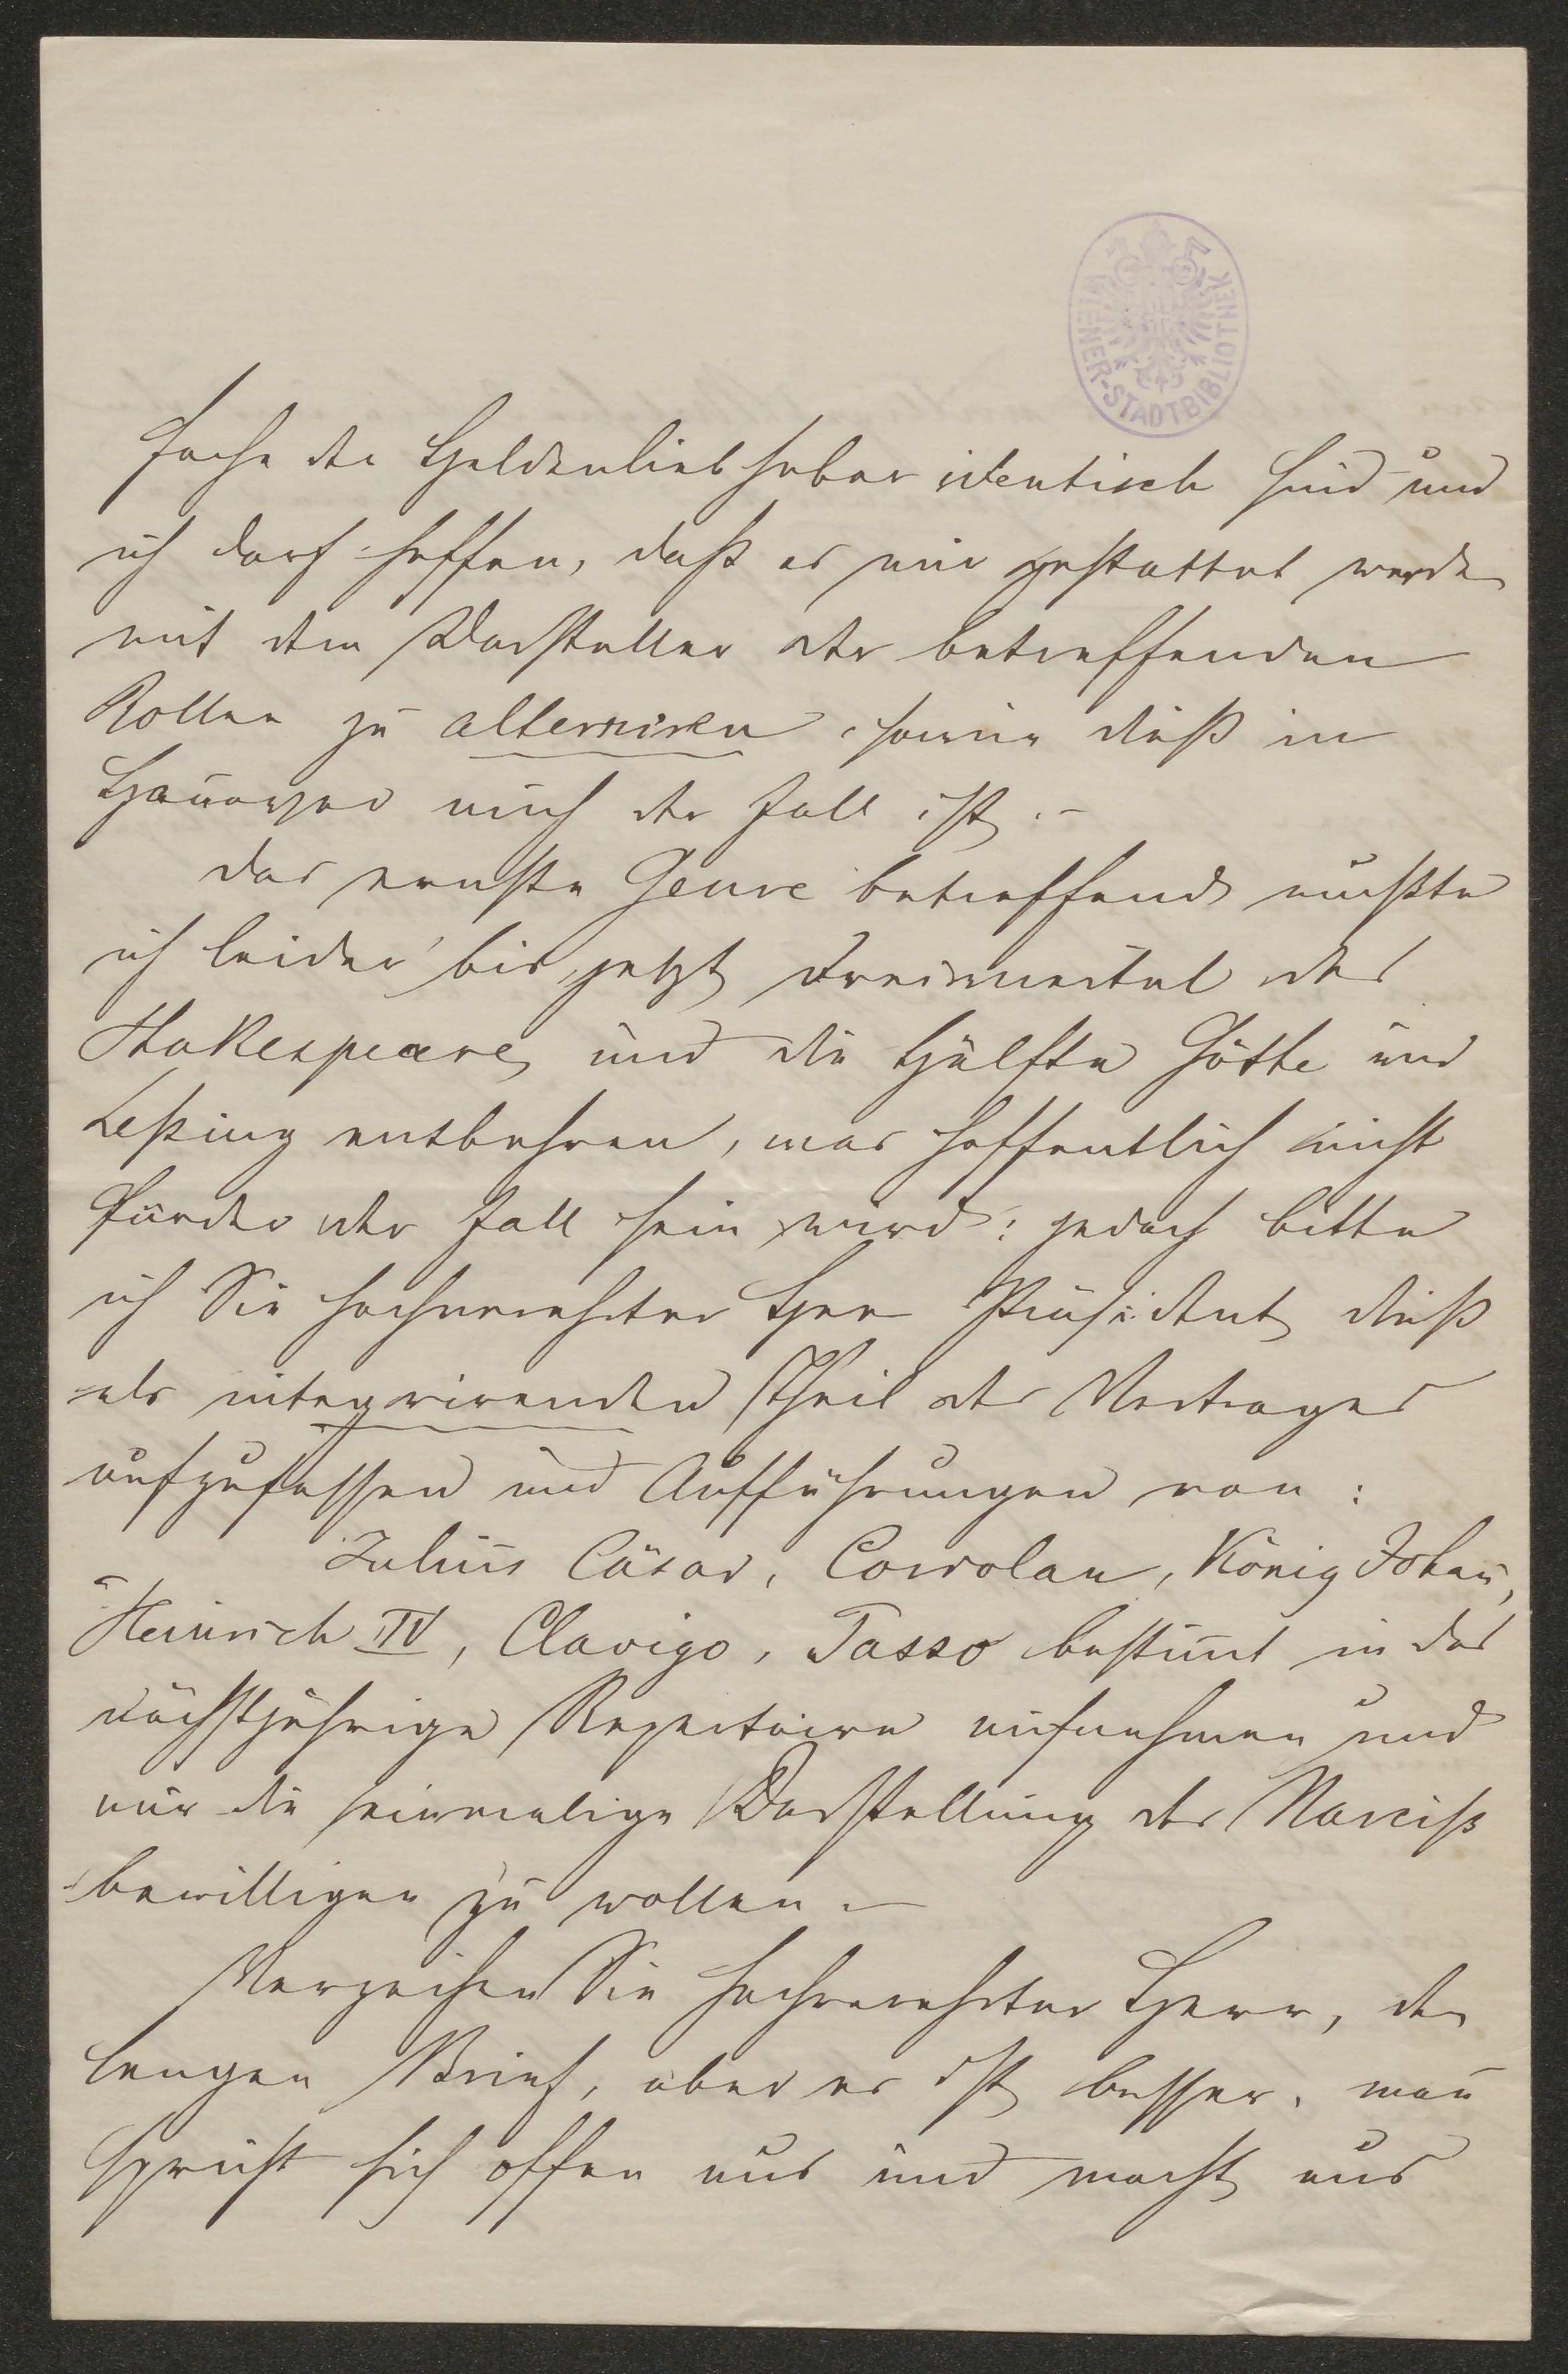 WIENER-STADTBIBLIOTHEK
Fache der Heldenliebhaber identisch sind und
ich darf hoffen, daß es mir gestattet werde
mit dem Darsteller der betreffenden
Rollen zu alterniren, sowie dieß in
Hañover auch der Fall ist. –
Das ernste Genre betreffend mußte
ich leider bis jetzt dreiviertel des
Shakespeare und die Hälfte Göthe und
Leßing entbehren, was hoffentlich nicht
fürder der Fall sein wird; jedoch bitte
ich Sie hochverehrter Herr Präsident dieß
als integrirenden Theil des Vertrages
aufzufassen und Aufführungen von:
Julius Cäsar, Coriolan, König Johañ,
Heinrich IV, Clavigo, Tasso bestim̄t in das
nächstjährige Repertoire aufnehmen und
nur die einmalige Darstellung des Narciß
bewilligen zu wollen. –
Verzeihen Sie hochverehrter Herr, den
langen Brief, aber es ist besser, man
spricht sich offen aus und macht aus